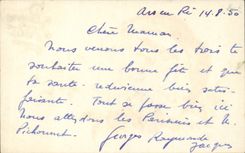 Ars en Ré 14.8.50
Chère Maman
Nous venons tous les trois te
souhaiter une bonne fête et que
ta santé redevienne bien satis-
faisante. Tout se passe bien ici
nous allons dans les
Georges Raymonde
Jacques